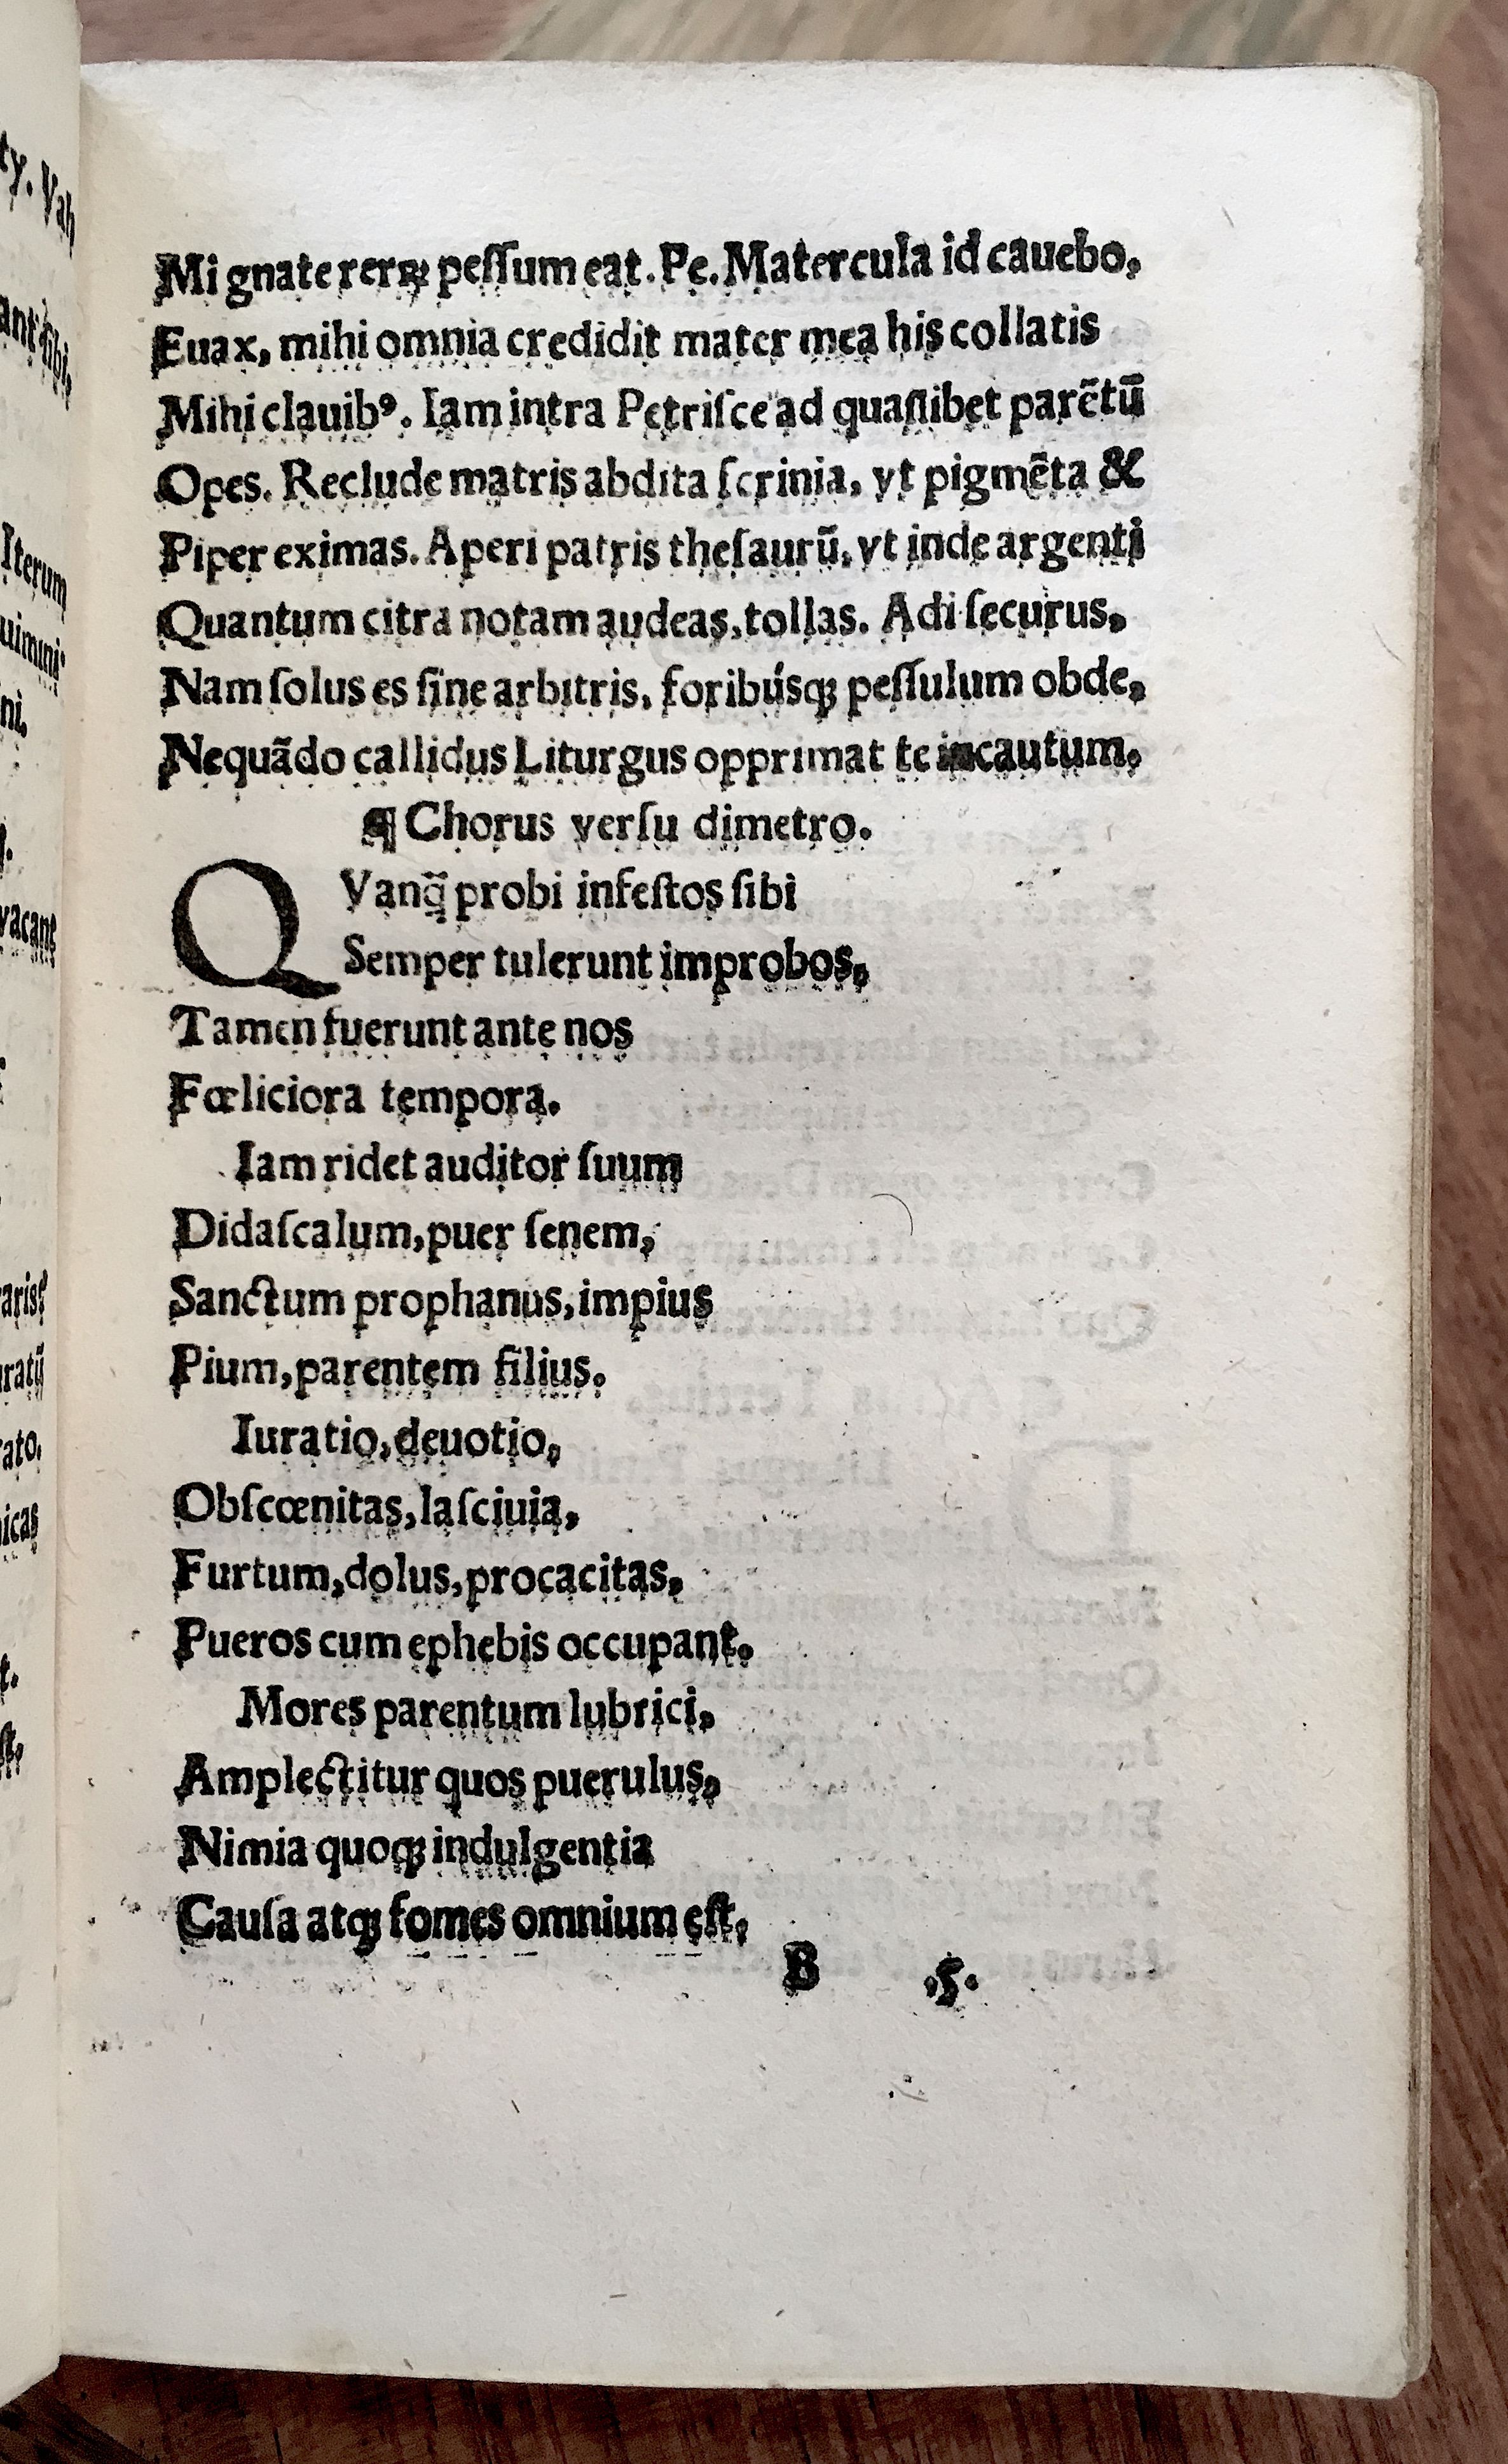 Mi gnate rerꝝ peſſum eat. Pe. Matercula id cauebo,
Euax, mihi omnia credidit mater mea his collatis
Mihi clauibꝰ. Iam intra Petriſce ad quaſlibet parẽtũ
Opes. Reclude matris abdita ſcrinia, vt pigmẽta &
Piper eximas. Aperi patris theſaurũ, vt inde argenti
Quantum citra notam audeas, tollas. Adi ſecurus,
Nam ſolus es ſine arbitris, foribúsqꝫ peſſulum obde,
Nequãdo callidus Liturgus opprimat te incautum.
¶ Chorus verſu dimetro.
QVanq̃ probi infeſtos ſibi
Semper tulerunt improbos,
Tamen fuerunt ante nos
Fœliciora tempora.
Iam ridet auditor ſuum
Didaſcalum, puer ſenem,
Sanctum prophanus, impius
Pium, parentem filius.
Iuratio, deuotio,
Obſcœnitas, laſciuia,
Furtum, dolus, procacitas,
Pueros cum ephebis occupant.
Mores parentum lubrici,
Amplectitur quos puerulus,
Nimia quoqꝫ indulgentia
Cauſa atqꝫ fomes omnium eſt.
B .5.